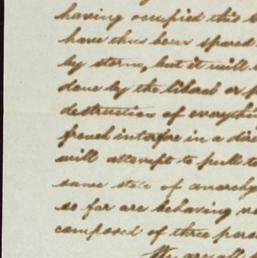 having occupied this
have thus been spared
by storm, but it will
done by the liberal or
destruction of everything
french interfere in a
will attempt to pull
same state of anarchy
so far are behaving
composed of three
We are all